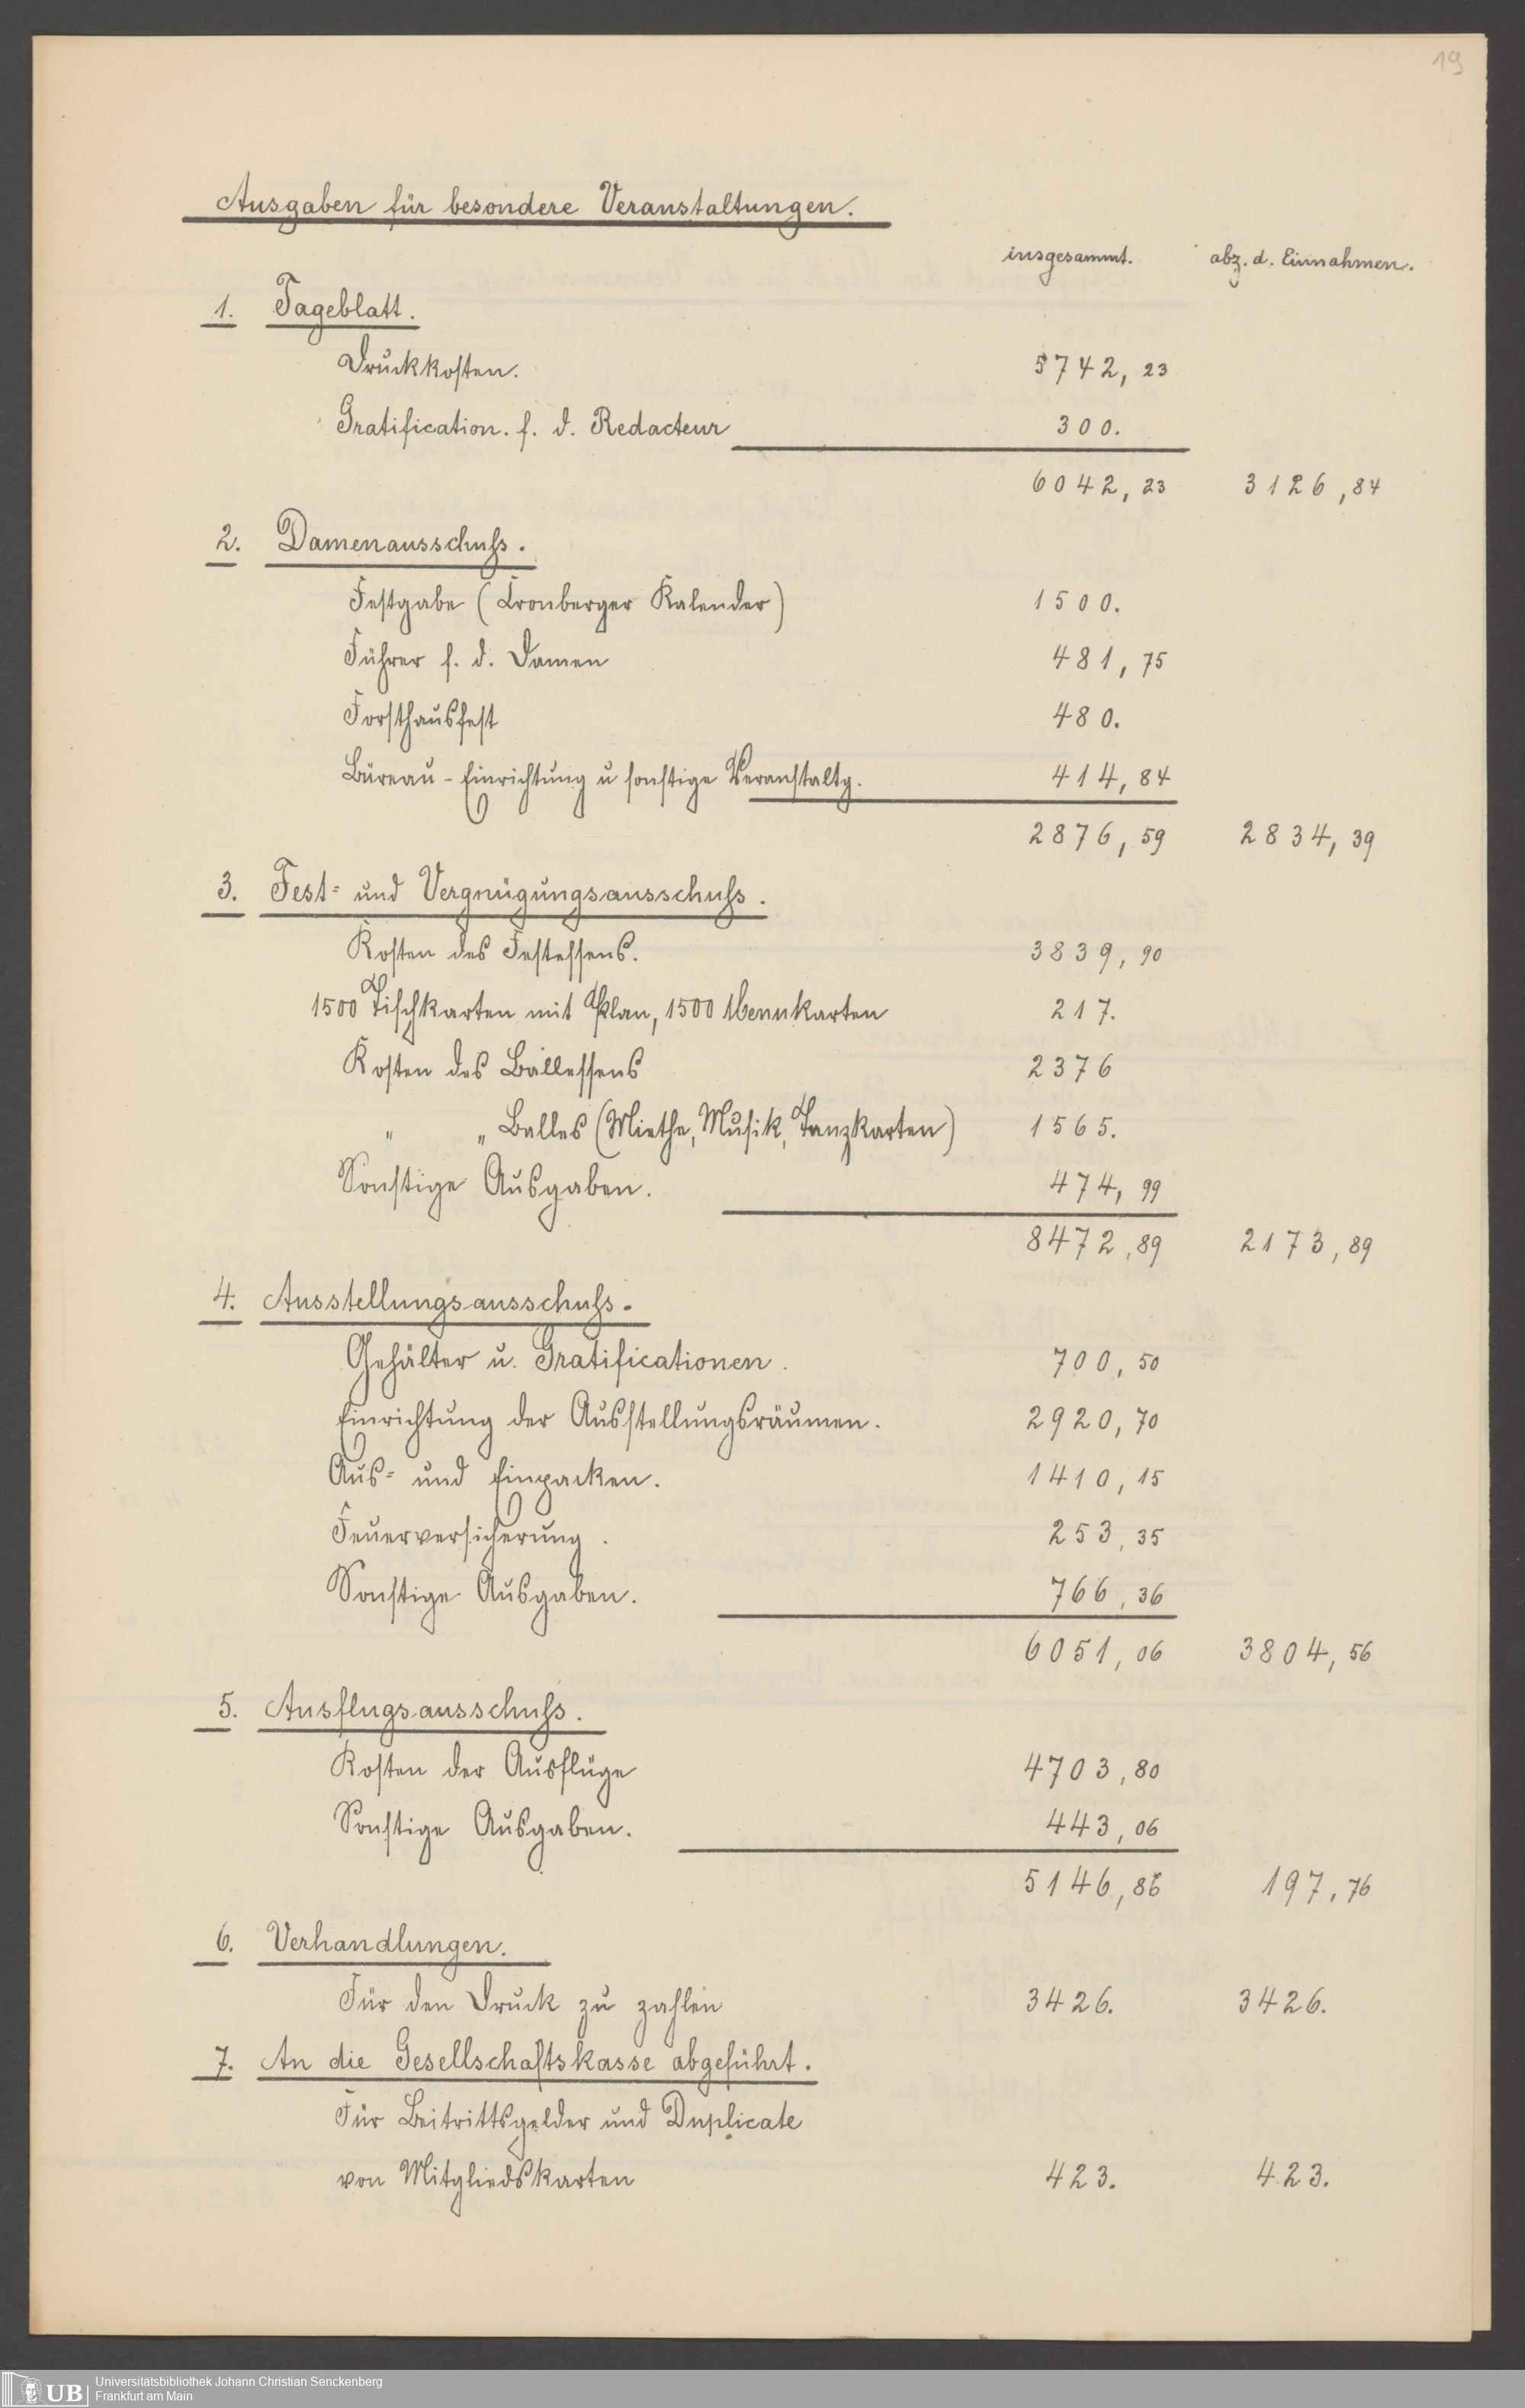 19
Ausgaben für besondere Veranstaltungen.
insgesammt. abz. d. Einnahmen.
1. Tageblatt.
Druckkosten. 5742, 23
Gratification. f. d. Redacteur 300.
6042, 23 3126, 84
2. Damenausschuß.
Festgabe (Cronberger Kalender) 1500.
Führer f. d. Damen 481, 75
Forsthausfest 480.
Büreau-Einrichtung u sonstige Veranstaltg. 414, 84
2876, 59 2834, 39
3. Fest- und Vergnügungsausschuß.
Kosten des Festessens. 3839, 90
1500 Tischkarten mit Plan, 1500 Menukarten 217.
Kosten des Ballessens 2376
" " Balles (Miethe, Musik, Tanzkarten) 1565.
Sonstige Ausgaben. 474, 99
8472, 89 2173, 89
4. Ausstellungsausschuß.
Gehälter u. Gratificationen. 700, 50
Einrichtung der Ausstellungsräumen. 2920, 70
Aus- und Einpacken. 1410, 15
Feuerversicherung. 253, 35
Sonstige Ausgaben. 766, 36
6051, 06 3804, 56
5. Ausflugsausschuß.
Kosten der Ausflüge 4703, 80
Sonstige Ausgaben. 443, 06
5146, 86 197, 76
6. Verhandlungen.
Für den Druck zu zahlen 3426. 3426.
7. An die Gesellschaftskasse abgeführt.
Für Beitrittsgelder und Duplicate
von Mitgliedskarten 423. 423.
UB Universitätsbibliothek Johann Christian Senckenberg
Frankfurt am Main